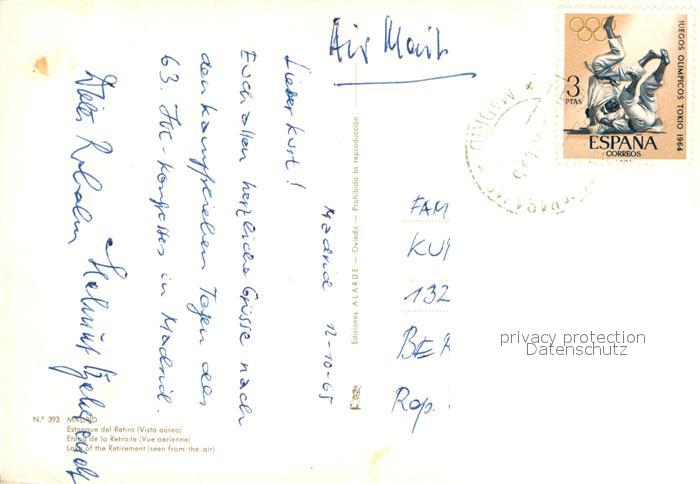 Air Mail
JUEGOS OLIMPICOS TOKIO 1964
3
PTAS
ESPAÑA
CORREOS
MADRID
Madrid 12-10-65
Lieber Kurt!
Euch allen herzliche Grüsse nach
den kampfreichen Tagen des
63. IOC-Kongresses in Madrid.
Helmut Behrendt
Ediciones ALARDE — Oviedo — Prohibida la reproducción
FAM
KU
132
BER
Rep.
privacy protection
Datenschutz
N.° 393 MADRID
Estanque del Retiro (Vista aérea)
Etang de la Retraite (Vue aérienne)
Lake of the Retirement (seen from the air)